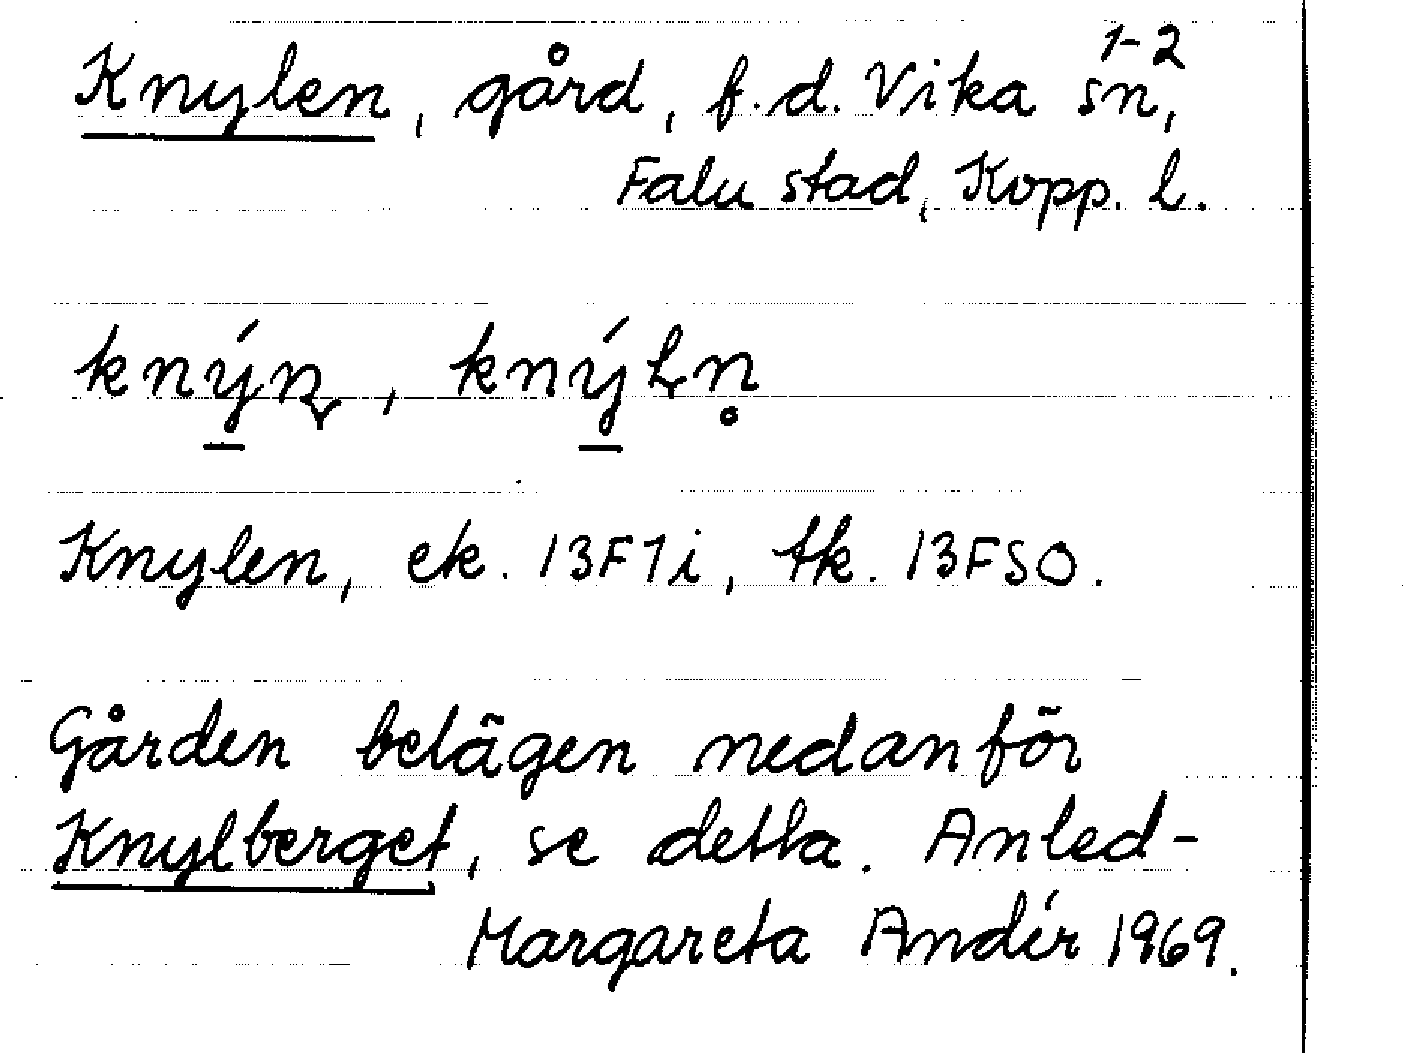 Knylen, gård, f.d. Vika sn, 1-2
Falu stad, Kopp. l.
kný̱n, kný̱ln̥
Knylen, ek. 13F7i, tk. 13FSO.
Gården belägen nedanför
Knylberget, se detta. Anled-
Margareta Andér 1969.